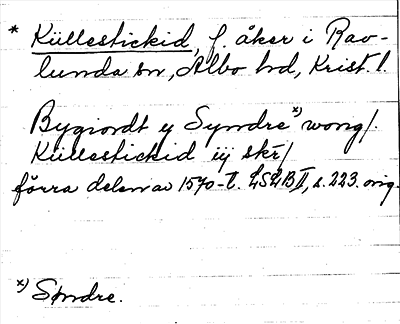 * Küllestickid, f. åker i Rav-
lunda sn, Albo hd, Krist. l.
Bygiordt y Syndre x) wong/.
Küllestickid iij skr/
förra delen av 1570-t. LSLB II, s. 223. orig.
x) Sÿndre.